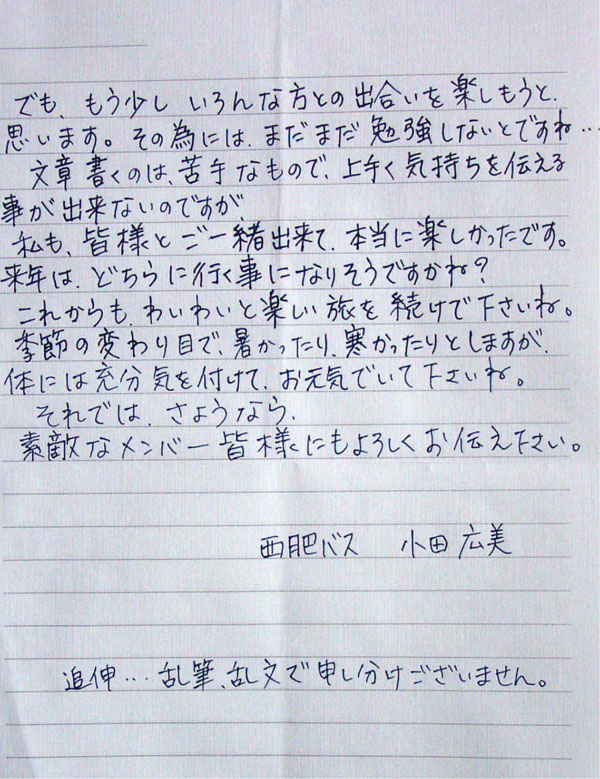 でも、もう少し いろんな方との出合いを楽しもうと、
思います。その為には、まだまだ勉強しないとですね…
文章書くのは、苦手なもので、上手く気持ちを伝える
事が出来ないのですが、
私も、皆様とご一緒出来て、本当に楽しかったです。
来年は、どちらに行く事になりそうですかね？
これからも、わいわいと楽しい旅を続けで下さいね。
季節の変わり目で、暑かったり、寒かったりとしますが、
体には充分気を付けて、お元気でいて下さいね。
それでは、さようなら、
素敵なメンバー皆様にもよろしくお伝え下さい。
西肥バス 小田広美
追伸…乱筆、乱文で申し分けございません。